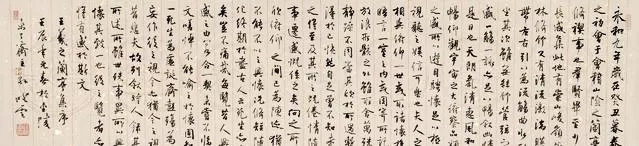 永和九年歲在癸丑暮春
之初會于會稽山陰之蘭亭
脩禊事也群賢畢至少
長咸集此地有崇山峻領茂
林脩竹又有清流激湍暎
帶左右引以為流觴曲水列
坐其次雖無絲竹管弦之
盛一觴一詠亦足以暢敘幽情
是日也天朗氣清惠風和
暢仰觀宇宙之大俯察品類
之盛所以遊目騁懷足以極
視聽之娛信可樂也夫人之
相與俯仰一世或取諸懷抱
悟言一室之內或因寄所託
放浪形骸之外雖趣舍萬殊
靜躁不同當其欣於所遇暫
得於己快然自足不知老
之將至及其所之既惓情隨
事遷感慨係之矣向之所
欣俛仰之間已為陳迹猶
不能不以之興懷況脩短隨
化終期於盡古人云死生亦大
矣豈不痛哉每攬昔人興
感之由若合一契未嘗不臨
文嗟悼不能喻之於懷固知
一死生為虛誕齊彭殤為
妄作後之視今亦由今之視
昔悲夫故列敘時人錄其
所述雖世殊事異所以興
懷其致一也後之攬者亦
將有感於斯文
王羲之蘭亭集序